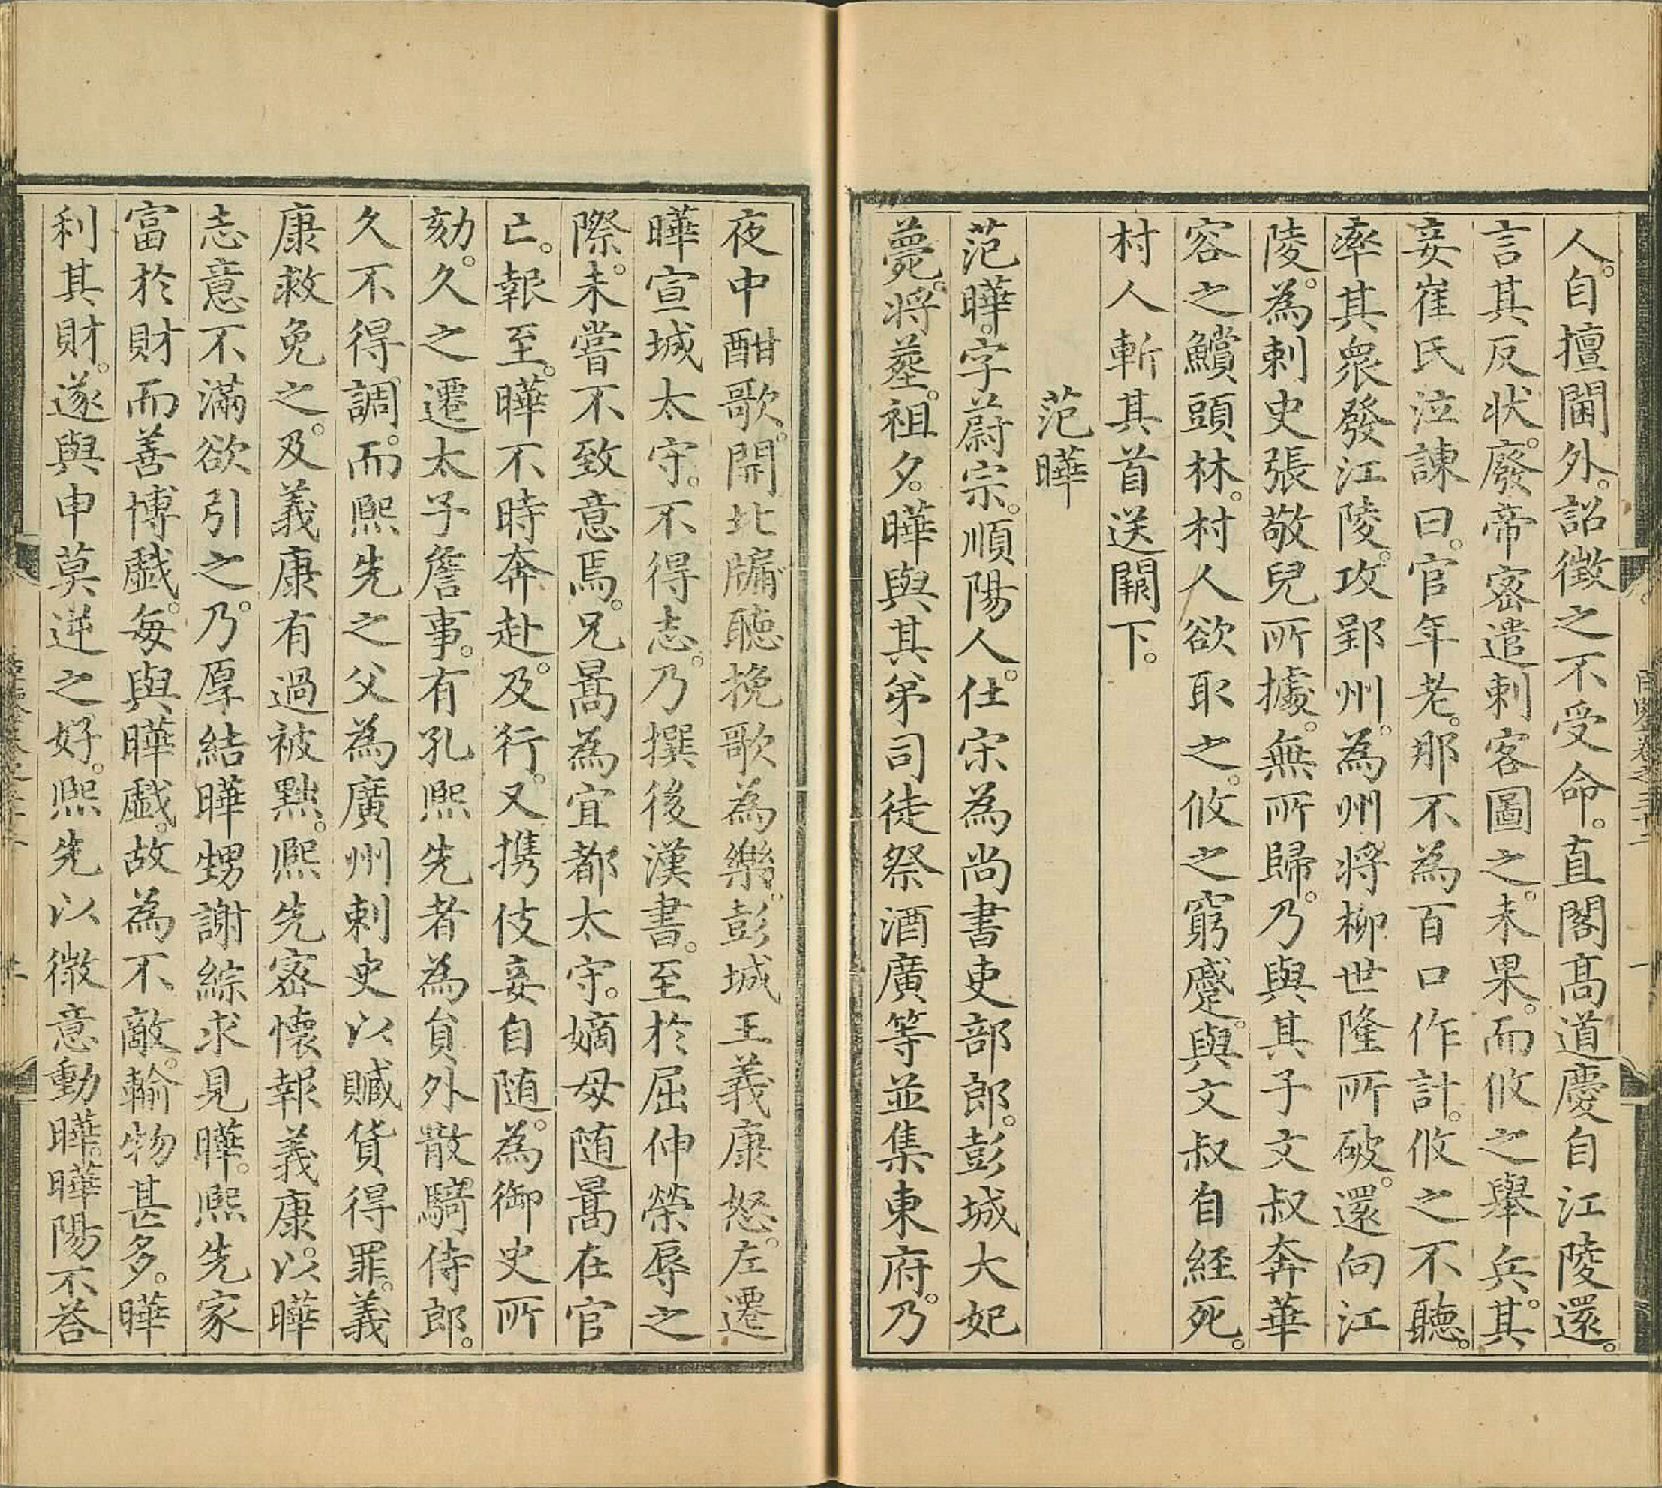 人。自擅閫外。詔徵之不受命。直閣髙道慶自江陵還。
言其反状。廢帝密遣刺客圖之。未果。而攸之舉兵。其
妾崔氏泣諫曰。官年老。那不為百口作計。攸之不聽。
率其衆發江陵。攻郢州。為州將柳世隆所破。還向江
陵。為刺史張敬兒所據。無所歸。乃與其子文叔奔華
容之鱝頭林。村人欲取之。攸之窮蹙。與文叔自経死。
村人斬其首送闕下。
范曄
范曄。字蔚宗。順陽人。仕宋為尚書吏部郎。彭城大妃
薨。将葬。祖夕。曄與其弟司徒祭酒廣等並集東府。乃
夜中酣歌。開北牖聽挽歌為樂。彭城王義康怒。左遷
曄宣城太守。不得志。乃撰後漢書。至於屈伸榮辱之
際。未嘗不致意焉。兄暠為宜都太守。嫡母随暠在官
亡。報至。曄不時奔赴。及行。又携伎妾自随。為御史所
劾。久之遷太子詹事。有孔熙先者為貟外散騎侍郎。
久不得調。而熙先之父為廣州刺史以贓貨得罪。義
康救免之。及義康有過被黜。熙先密懐報義康。以曄
志意不滿欲引之。乃厚結曄甥謝綜求見曄。熙先家
富於財而善博戯。毎與曄戯。故為不敵。輸物甚多。曄
利其財。遂與申莫逆之好。熙先以微意動曄。曄陽不荅